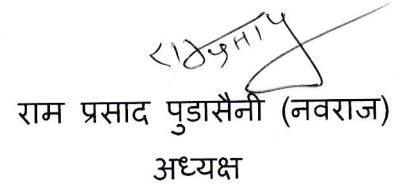 राम प्रसाद पुडासैनी (नवराज)
अध्यक्ष